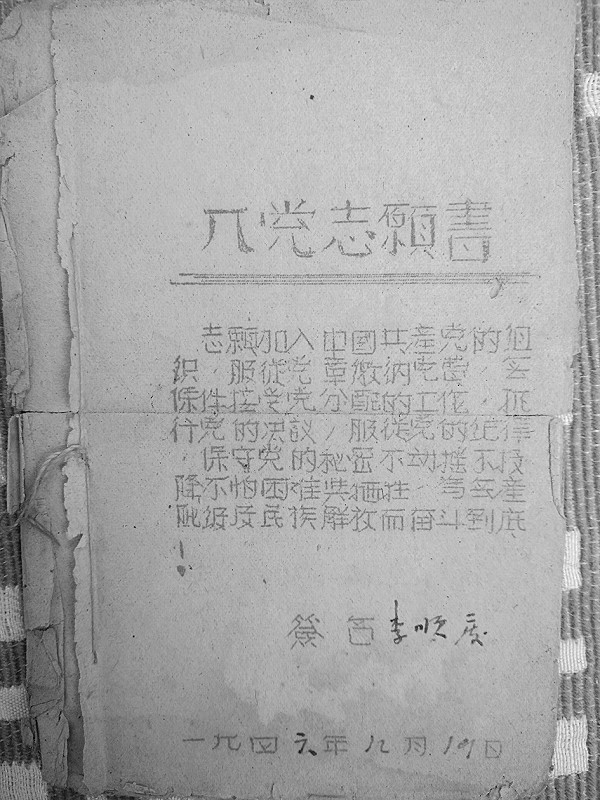 入党志願書
志願加入中國共產党的组
织，服從党章缴纳党费，无
條件接受党分配的工作，执
行党的决議，服從党的纪律
，保守党的秘密不动摇不投
降不怕困难與牺牲，為无產
阶级及民族解放而奋斗到底
！
簽名李順慶
一九四六年八月19日